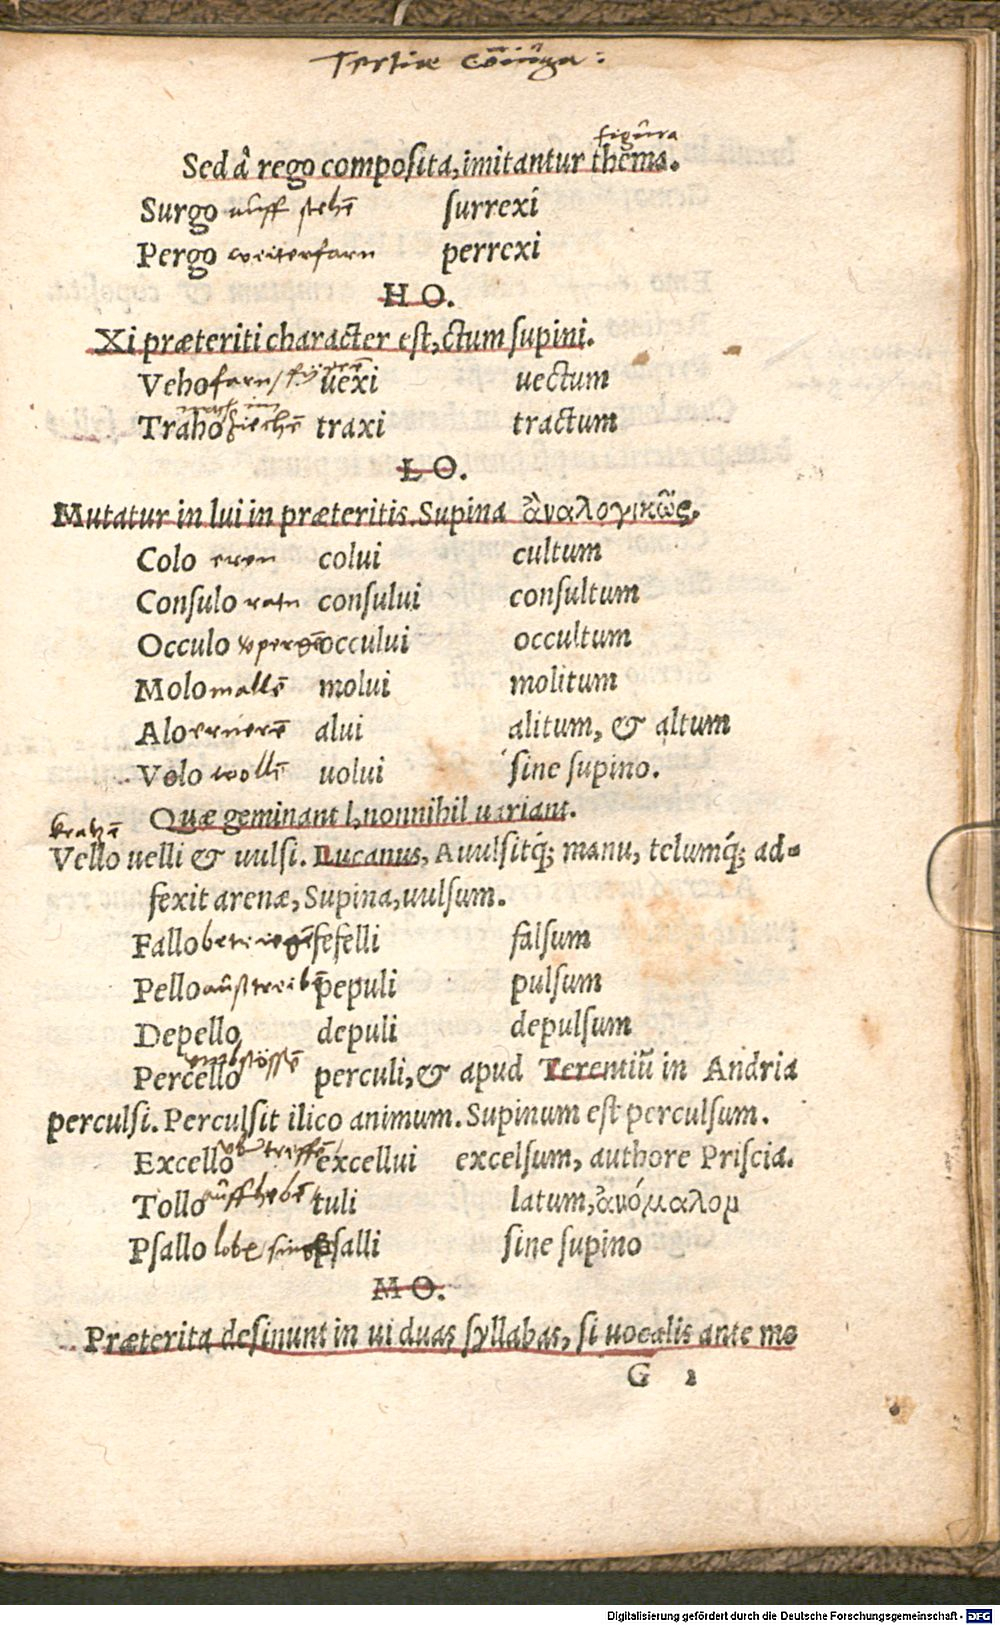 Tertiae Cõiũga:
figura
Sed à rego composita, imitantur thema.
Surgo auff stehẽ surrexi
Pergo weiterfarn perrexi
HO.
Xi præteriti character est, ctum supini.
Veho farn/ uexi uectum
Traho ziechẽ traxi tractum
LO.
Mutatur in lui in præteritis. Supina ἀναλογικῶς.
Colo eren colui cultum
Consulo ratn consului consultum
Occulo occului occultum
Molo mallẽ molui molitum
Alo ernerẽ alui alitum, & altum
Volo wollẽ uolui sine supino.
Quæ geminant l, nonnihil uariant.
kratzẽ
Vello uelli & uulsi. Lucanus, Auulsitq́; manu, telumq́; ad-
fexit arenæ, Supina, uulsum.
Fallo betriegẽ fefelli falsum
Pello außtreibẽ pepuli pulsum
Depello depuli depulsum
Percello perculi, & apud Terentiũ in Andria
perculsi. Perculsit ilico animum. Supinum est perculsum.
Excello excellui excelsum, authore Priscia.
Tollo auffhebẽ tuli latum, ἀνόμαλομ
Psallo psalli sine supino
MO.
Præterita desinunt in ui duas syllabas, si uocalis ante mo
G 2
Digitalisierung gefördert durch die Deutsche Forschungsgemeinschaft - DFG